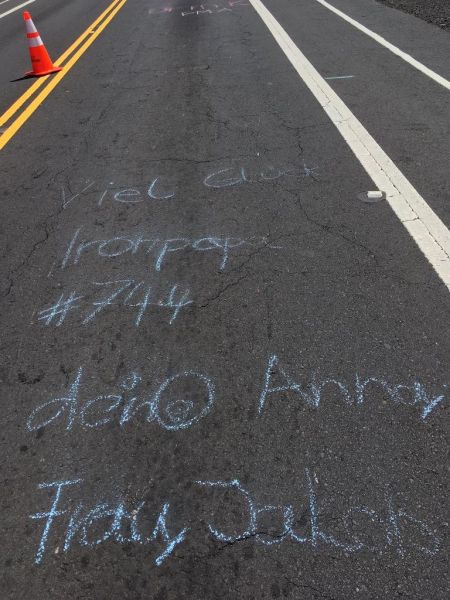 Viel Glück
Ironpapa
#744
deine Anna,
Jakob